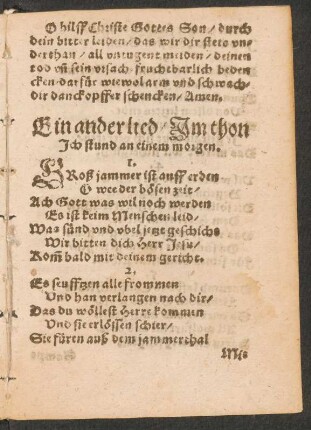 O hilff Christe Gottes Son / durch
dein bitter leiden / das wir dir stets vn-
derthan / all vntugent meiden / deinen
tod vñ sein vrsach / fruchtbarlich beden
cken / darfür wiewol arm vnd schwach /
dir danckopffer schencken / Amen.
Ein ander lied / Im thon
Ich stund an einem morgen.
1.
GRoß jammer ist auff erden
O wee der bösen zeit /
Ach Gott was wil noch werden
Es ist keim Menschen leid /
Was sünd vnd vbel jetzt geschicht
Wir bitten dich Herr Jesu /
Kom̃ bald mit deinem gericht.
2.
Es seuffgen alle frommen
Vnd han verlangen nach dir /
Das du wöllest Herre kommen
Vnd sie erlössen schier /
Sie füren auß dem jammerthal
Mit